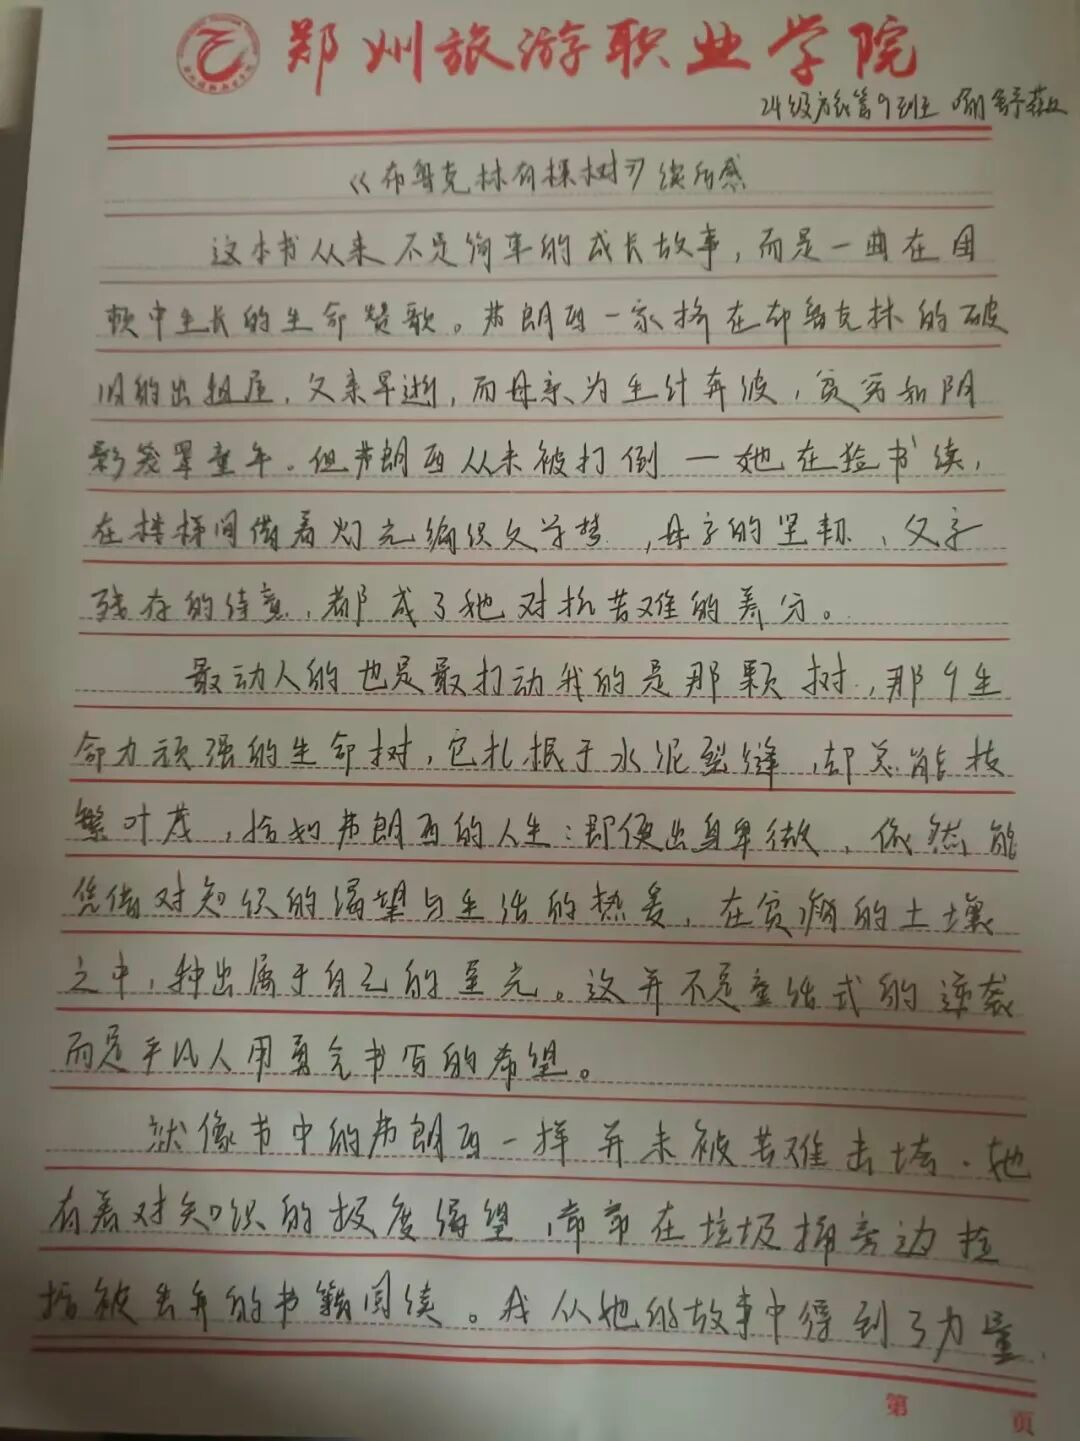 郑州旅游职业学院
24级旅管9班
《布鲁克林有棵树》读后感
这本书从来不是简单的成长故事，而是一曲在困
顿中生长的生命赞歌。弗朗西一家挤在布鲁克林的破
旧的出租屋，父亲早逝，而母亲为生计奔波，贫穷和阴
影笼罩童年。但弗朗西从未被打倒—她在捡书读，
在楼梯间借着灯光编织文学梦，母亲的坚韧、父亲
残存的诗意，都成了她对抗苦难的养分。
最动人的也是最打动我的是那颗树，那个生
命力顽强的生命树，它扎根于水泥裂缝，却总能枝
繁叶茂，恰如弗朗西的人生：即便出身卑微，依然能
凭借对知识的渴望与生活的热爱，在贫瘠的土壤
之中，种出属于自己的星光。这并不是童话式的逆袭
而是平凡人用勇气书写的希望。
就像书中的弗朗西一样并未被苦难击垮．她
有着对知识的极度渴望，常常在垃圾桶旁边捡
拾被丢弃的书籍阅读。我从她的故事中得到了力量
第 页